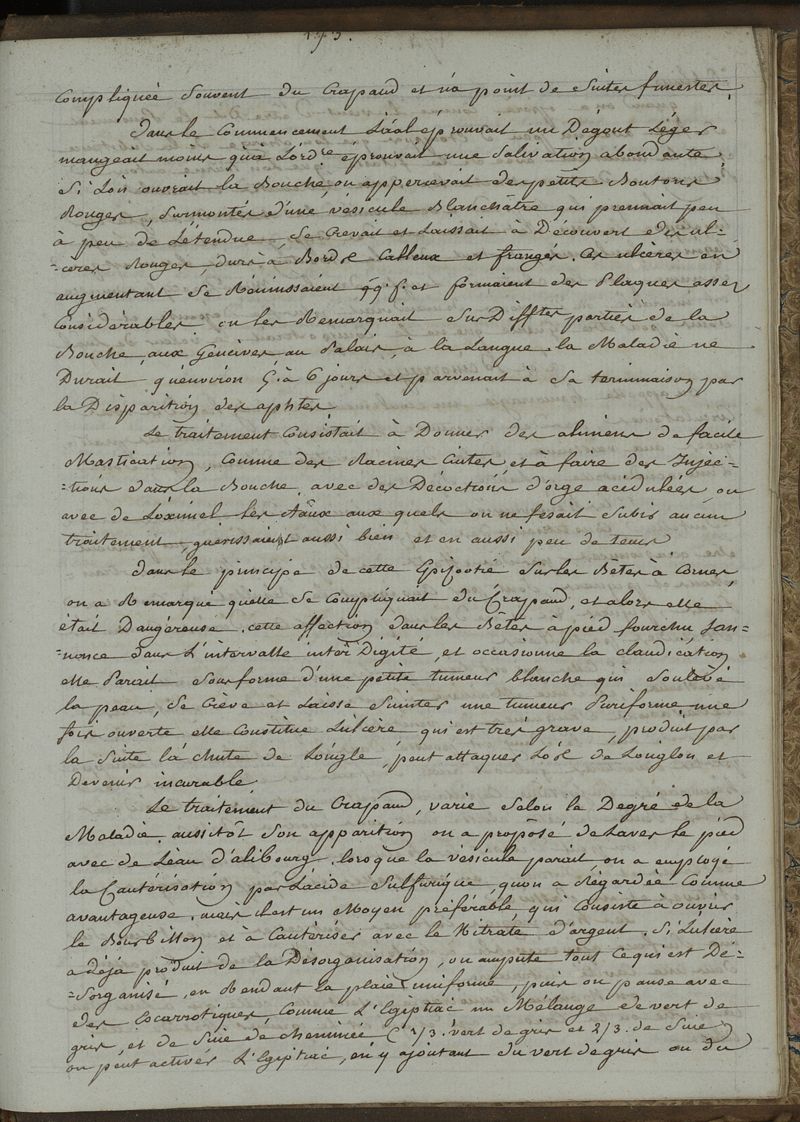 193.
Compliquée Souvent du Crapaud et n'a point de Suites funestes.
Dans le Commencement L'aal éprouvait un Dégout Léger
mangeait moins qu'à L'ord.re éprouvait une Salivation abondante
Si L'on ouvrait la Bouche, on appercevait de petits Boutons
Rouges, Surmontés d'une vésicule Blanchâtre qui prennait peu
à peu de L'étendue, Se Crevait et Laissait à Découvert des ul-
-cères Rouges, durs à Bords Calleux et frangés. Ces ulcères en
augmentant Se Réunissaient qq.f. et formaient des Plaques assez
Considérables. on les Remarquait Sur Diff.tes parties de la
Bouche, aux Gencives, au Palais, à la Langue. la Maladie ne
Durait qu'environ 5 à 6 jours et parvenait à Sa terminaison par
la Disparition des aphtes
Le traitement Consistait à Donner des alimens de facile
Mastication, Comme des Racines Cuites, et à faire des Injec-
-tions dans la Bouche avec des Décoctions d'orge acidulées, ou
avec de L'oximel. les aaux aux quels on ne fesait Subir aucun
traitement guerissaient aussi bien et en aussi peu de tems
Dans le principe de cette Epizootie Sur les Bêtes à Cornes,
on a Remarqué qu'elle Se Compliquait du Crapaud, et alors elle
était Dangéreuse. cette affection dans les Bêtes à pied fourchu S'an-
-nonce dans L'intervalle inter Digité, et occasionne la claudication
elle Parait Sous forme d'une petite tumeur blanche qui Soulève
la peau, Se Crève et Laisse Suinter une tumeur Puriforme une
fois ouverte elle Constitue L'ulcère qui est très grave, produit par
la Suite la chute de L'ongle, peut attaquer L'os de L'onglon et
Devenir incurable.
Le traitement du Crapaud, varie Selon le Degré de la
Maladie. aussitôt Son apparition on a proposé de Laver le pied
avec de L'eau d'alibourg. lorsque la vésicule parait, on a employé
la Cautérisation par L'acide Sulfurique, qu'on a Régardée Comme
avantageuse. mais c'est un Moyen préférable, qui Consiste à ouvrir
le Bourbillon et à Cautériser avec le Nitrate d'argent. Si L'ulcère
a Déjà produit de la Désorganisation, on ampute tout Ce qui est Dé-
-Sorganisé, en Rendant la plaie uniforme, puis on panse avec
des Escarrotiques, Comme L'Egiptiac un Mélange de vert de
gris, et de Suie de cheminée (1/3. vert de gris et 2/3. de Suie)
on peut activer L'Egiptiac, en y ajoutant du vert de gris ou du